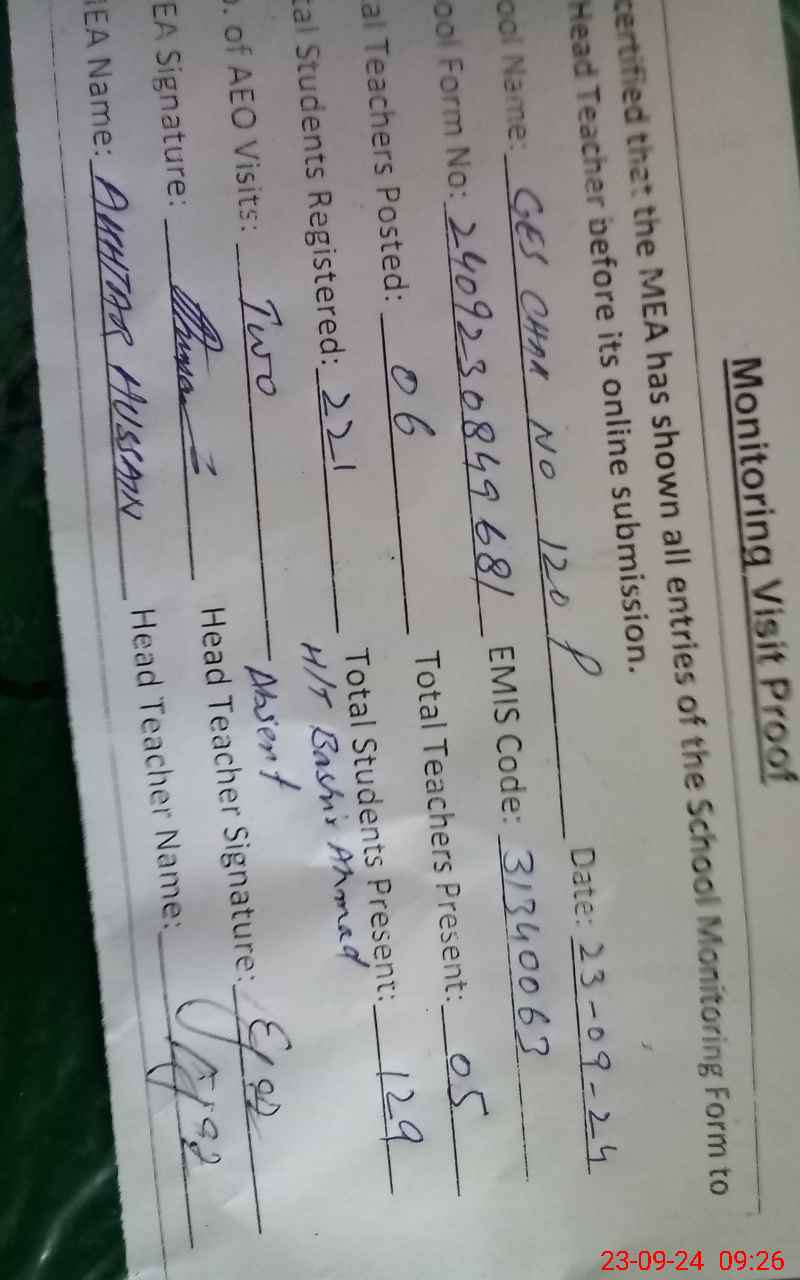 Monitoring Visit Proof
certified that the MEA has shown all entries of the School Monitoring Form to
Head Teacher before its online submission.
ool Name: GES CHAK NO 120 P Date: 23-09-24
ool Form No: 24092308499681 EMIS Code: 31340063
al Teachers Posted: 06 Total Teachers Present: 05
tal Students Registered: 221 Total Students Present: 129
. of AEO Visits: Two H/T Bashir Ahmad
Absent
EA Signature: Head Teacher Signature:
MEA Name: AKHTAR HUSSAIN Head Teacher Name:
23-09-24 09:26